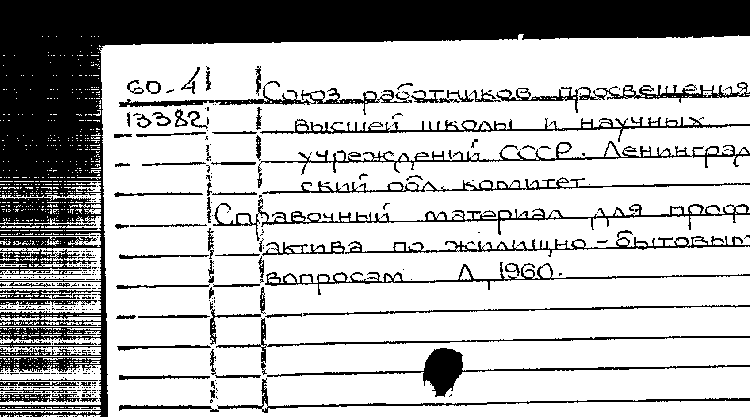 60-4 Союз работников просвещения
13382 высшей школы и научных
учреждений СССР. Ленинград
ский обл. комитет
Справочный материал для проф
актива по жилищно-бытовым
вопросам Л, 1960.